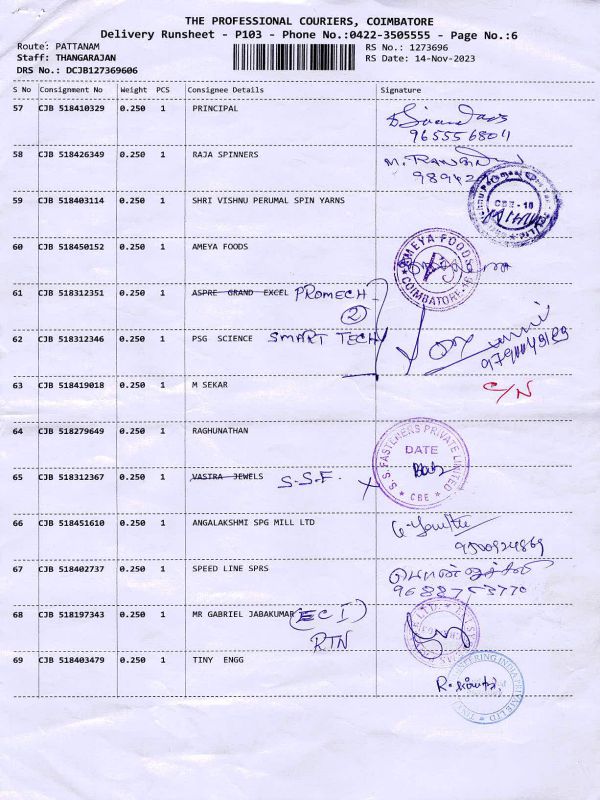 THE PROFESSIONAL COURIERS, COIMBATORE
Delivery Runsheet - P103 - Phone No.:0422-3505555 - Page No.:6
Route: PATTANAM
RS No.: 1273696
Staff: THANGARAJAN
RS Date: 14-Nov-2023
DRS No.: DCJB127369606
S No Consignment No Weight PCS Consignee Details Signature
57 CJB 518410329 0.250 1 PRINCIPAL
58 CJB 518426349 0.250 1 RAJA SPINNERS
59 CJB 518403114 0.250 1 SHRI VISHNU PERUMAL SPIN YARNS
CBE - 10
60 CJB 518450152 0.250 1 AMEYA FOODS
AMEYA FOODS
COIMBATORE
61 CJB 518312351 0.250 1 ASPRE GRAND EXCEL PROMECH
2
62 CJB 518312346 0.250 1 PSG SCIENCE SMART TECH
63 CJB 518419018 0.250 1 M SEKAR C/N
64 CJB 518279649 0.250 1 RAGHUNATHAN
S.S. FASTENERS PRIVATE LIMITED
DATE
CBE
65 CJB 518312367 0.250 1 VASTRA JEWELS S.S.F.
66 CJB 518451610 0.250 1 ANGALAKSHMI SPG MILL LTD
9500924869
67 CJB 518402737 0.250 1 SPEED LINE SPRS
68 CJB 518197343 0.250 1 MR GABRIEL JABAKUMAR (ECI)
RTN
69 CJB 518403479 0.250 1 TINY ENGG